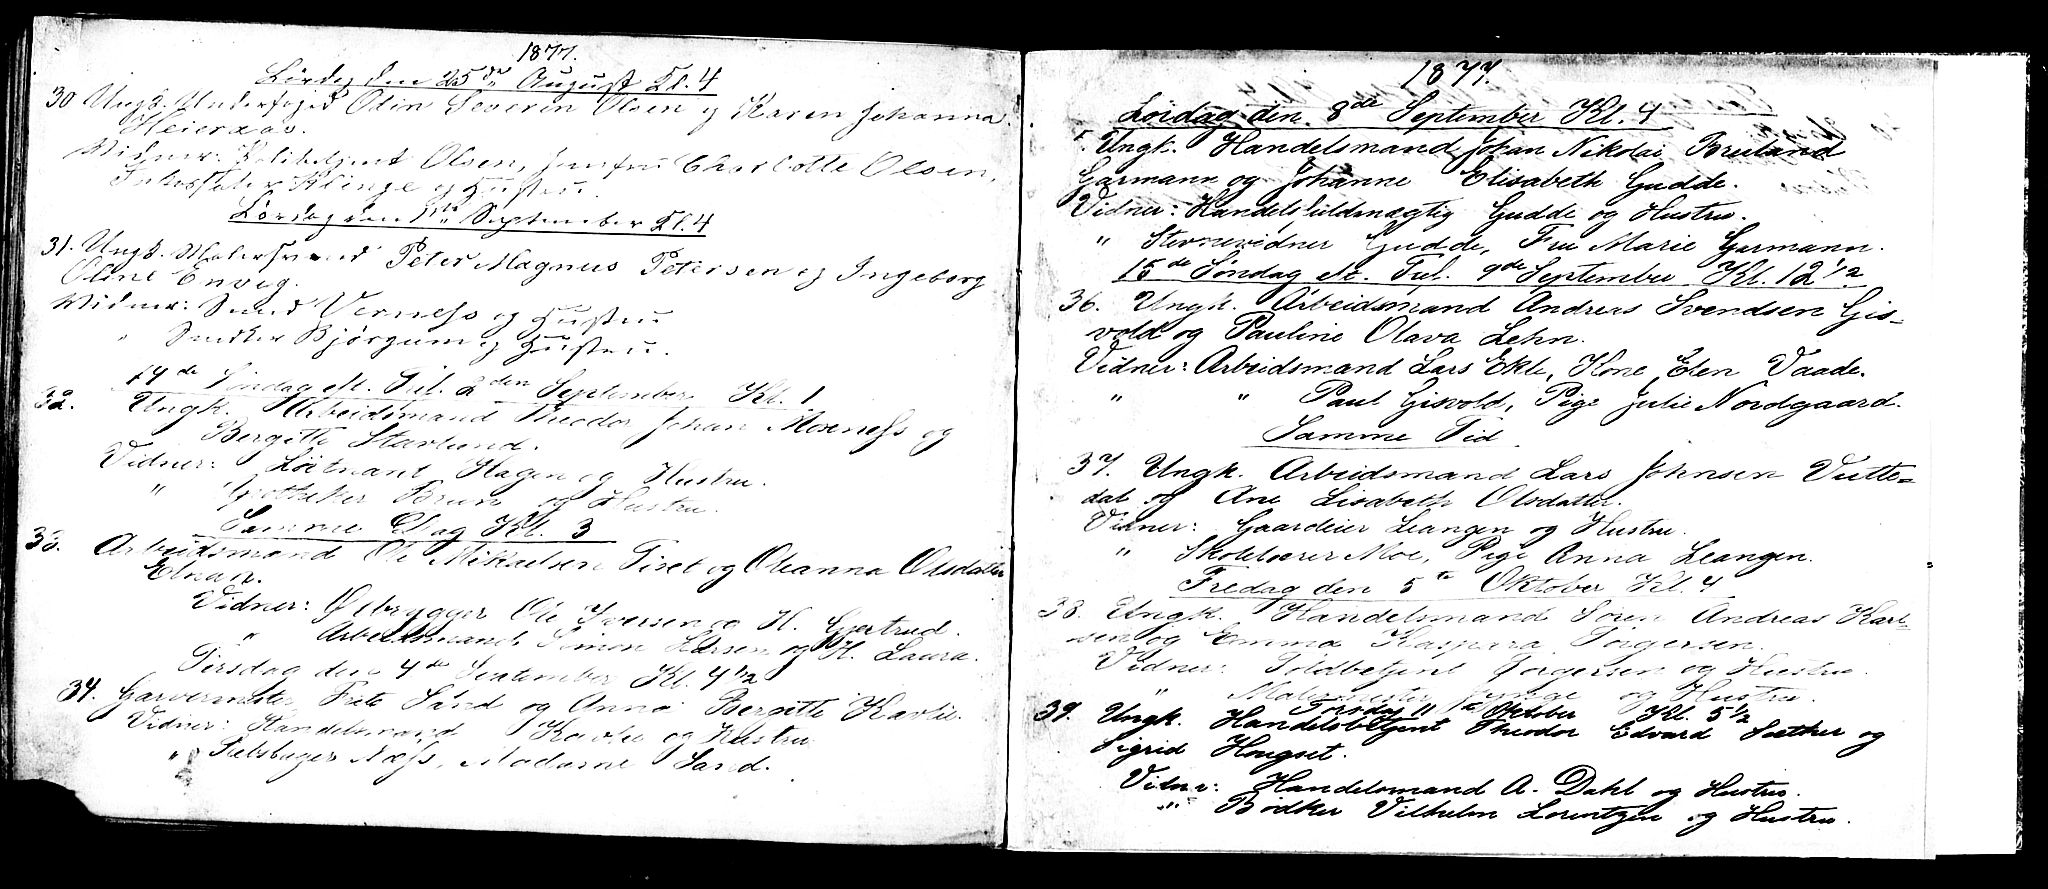 1877.
Lørdag den 25de August Kl. 4
30 Ungk. Underfoged Odin Severin Olsen og Karen Johanna
Heieraas.
Vidner: Politibetjent Olsen, Jomfru Charlotte Olsen,
Klinge og Hustru.
Lørdag den 1ste September Kl. 4
31. Ungk. Malersvend Peter Magnus Petersen og Ingeborg
Oline Envig.
Vidner: Smed Verness og Hustru
" Snedker Bjørgum og Hustru.
14de Søndag e. Tr. 2den September Kl. 1
32. Ungk. Arbeidsmand Theodor Johan Moxness og
Bergitte Stavlund.
Vidner: Løitnant Hagen og Hustru.
" Apotheker Brun og Hustru.
Samme Dag Kl. 3
33. Arbeidsmand Ole Mikaelsen Tiset og Oleanna Olsdatter
Elnan.
Vidner: Ølbrygger Ole Iversen og H. Gjertrud.
" Arbeidsmand Simon Larsen og H. Laura.
Tirsdag den 4de September Kl. 4 1/2
34. Garvermester Frits Sand og Anna Bergitte Kavlie.
Vidner: Handelsmand Kavlie og Hustru
" Næss, Madame Sand.
1877.
Lørdag den 8de September Kl. 4
Ungk. Handelsmand Johan Nikolai Bruland
Garmann og Johanne Elisabeth Gudde.
Vidner: Handelsfuldmægtig Gudde og Hustru.
" Stevnevidner Gudde, Fru Marie Garmann.
15de Søndag e. Tr. 9de September Kl. 12 1/2
36. Ungk. Arbeidsmand Andreas Svendsen Gis-
vold og Pauline Olava Lehn.
Vidner: Arbeidsmand Lars Ekle, Kone Elen Vaade.
" " Paul Gisvold, Pige Julie Nordgaard.
Samme Tid
37. Ungk. Arbeidsmand Lars Johnsen Vutte-
dal og Ane Lisabeth Olsdatter.
Vidner: Gaardeier Leangen og Hustru.
" Skolelærer Moe, Pige Anna Leangen.
Fredag den 5te Oktober Kl. 4
38. Ungk. Handelsmand Søren Andreas Karl-
sen og Emma Kaspara Torgersen.
Vidner: Toldbetjent Torgersen og Hustru.
" Malermester og Hustru.
Torsdag 11te Oktober Kl. 5 1/2
39. Ungk. Handelsbetjent Theodor Edvard Sæther og
Sigrid Hougset.
Vidner: Handelsmand A. Dahl og Hustru.
" Bødker Vilhelm Lorentzen og Hustru.